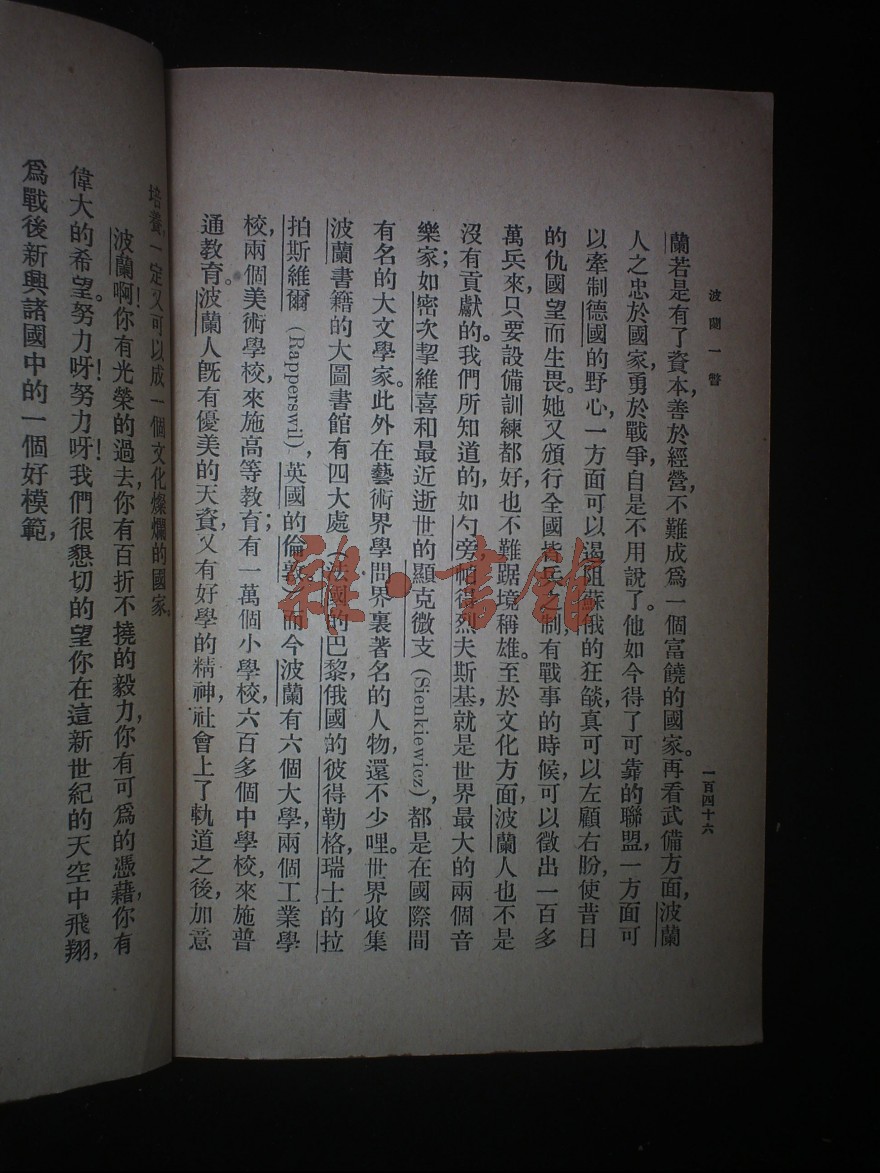 波蘭一瞥
一百四十六
蘭若是有了資本，善於經營，不難成爲一個富饒的國家。再看武備方面，波蘭
人之忠於國家，勇於戰爭，自是不用說了。他如今得了可靠的聯盟，一方面可
以牽制德國的野心，一方面可以遏阻蘇俄的狂燄，真可以左顧右盼，使昔日
的仇國望而生畏。她又頒行全國皆兵之制，有戰事的時候，可以徵出一百多
萬兵來，只要設備訓練都好，也不難踞境稱雄。至於文化方面，波蘭人也不是
沒有貢獻的。我們所知道的，如勺旁，帕得烈夫斯基，就是世界最大的兩個音
樂家；如密次挈維喜和最近逝世的顯克微支(Sienkiewicz)，都是在國際間
有名的大文學家。此外在藝術界學問界裏著名的人物，還不少哩。世界收集
波蘭書籍的大圖書館有四大處(法國的巴黎，俄國的彼得勒格，瑞士的拉
拍斯維爾(Rapperswil)，英國的倫敦。)而今波蘭有六個大學，兩個工業學
校，兩個美術學校，來施高等教育；有一萬個小學校，六百多個中學校，來施普
通教育。波蘭人旣有優美的天資，又有好學的精神，社會上了軌道之後，加意
培養，一定又可以成一個文化燦爛的國家。
波蘭啊！你有光榮的過去，你有百折不撓的毅力，你有可爲的憑藉，你有
偉大的希望。努力呀！努力呀！我們很懇切的望你在這新世紀的天空中飛翔，
爲戰後新興諸國中的一個好模範，
雜·書館